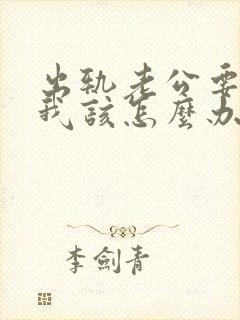 出轨老公要
我該怎麼办
李劍青